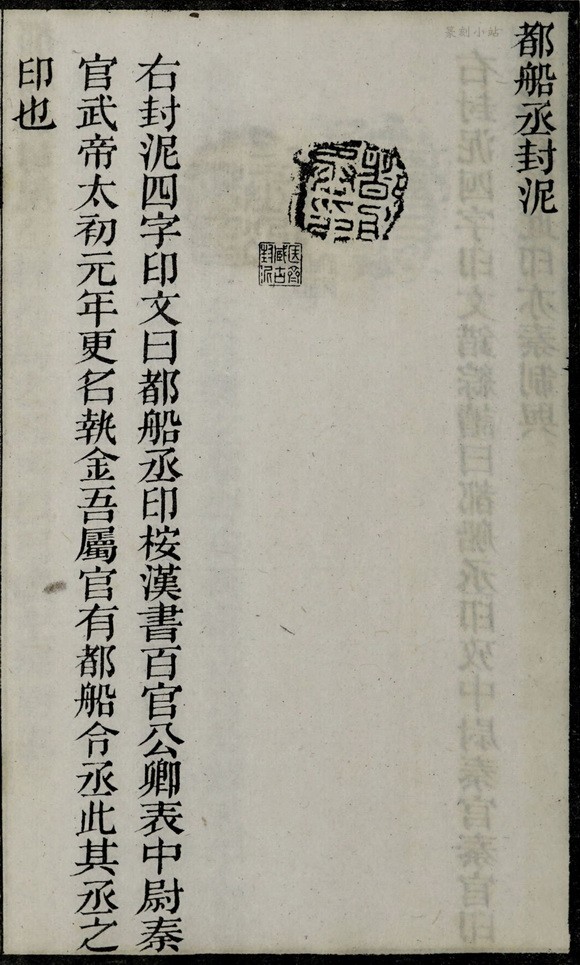 都船丞封泥
右封泥四字印文曰都船丞印桉漢書百官公卿表中尉秦
官武帝太初元年更名執金吾屬官有都船令丞此其丞之
印也
篆刻小站